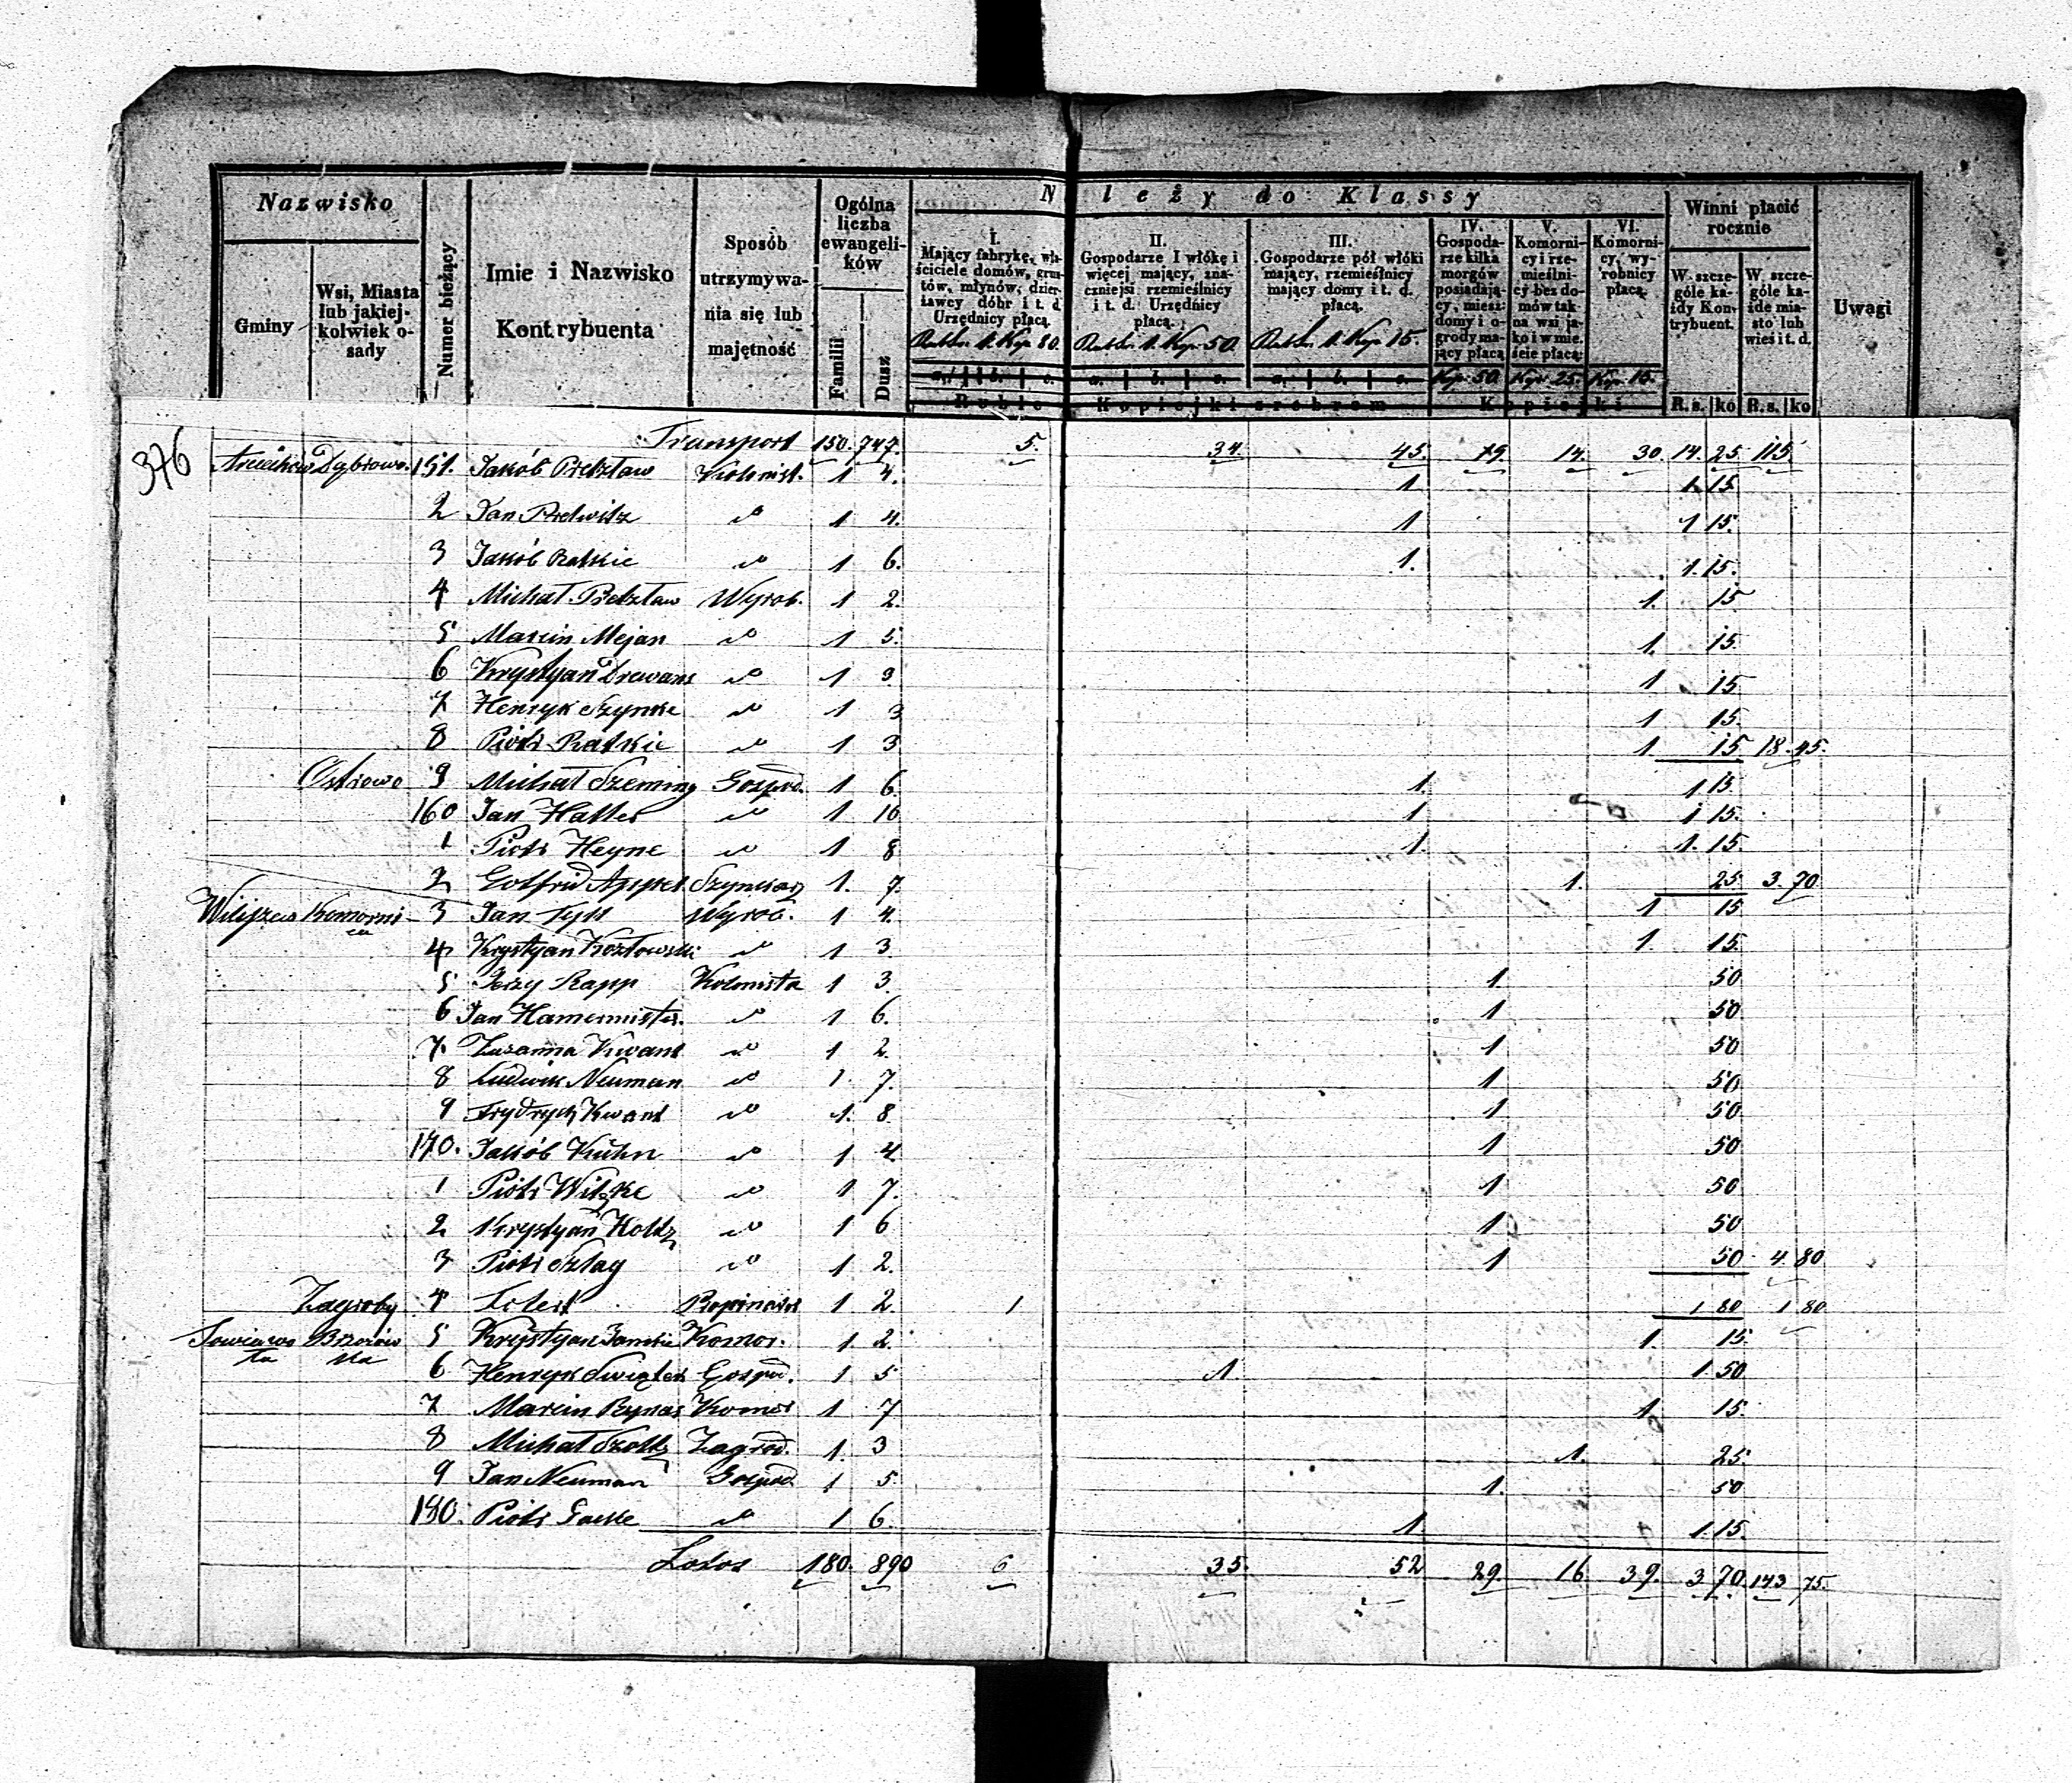 Nazwisko
Gminy
Wsi, Miasta lub jakiej-kolwiek o-sady
Numer bieżący
Imie i Nazwisko Kontrybuenta
Sposób utrzymywa-nia się lub majętność
Ogólna liczba ewangeli-ków
Familii
Dusz
Należy do Klassy
I. Mający fabrykę, wła-ściciele domów, grun-tów, młynów, dzier-żawcy dóbr i t. d Urzędnicy płacą.
Rubla 1. Kop 80.
II. Gospodarze I włókę i więcej mający, zna-czniejsi rzemieślnicy i t. d. Urzędnicy płacą.
Rubla 1. Kop 50.
III. Gospodarze pół włóki mający, rzemieślnicy mający domy i t. d. płacą.
Rubla 1. Kop 15.
IV. Gospoda-rze kilka morgów posiadają-cy, miesz: domy i o-grody ma-jący płacą
Kop 50.
V. Komorni-cy i rze-mieślni-cy bez do-mów tak na wsi ja-ko i w mie-ście płacą:
Kop 25.
VI. Komorni-cy, wy-robnicy płacą.
Kop 15.
a. b. c. a. b. c. a. b. c.
Ruble Kopiejki srebrem Kopiejki
Winni płacić rocznie
W szcze-góle ka-żdy Kon-trybuent.
W szcze-góle ka-żde mia-sto lub wieś i t. d.
R.s. ko R.s. ko
Uwagi
376
Transport 150. 747. 5. 34. 45. 19. 14. 30. 14. 25 115
Dąbrowa 151. Jakób Kolonist. 1 4. 1 1. 15.
2 Jan Pretwitz do 1 4. 1 1 15.
3 Jakób Ratkie do 1 6. 1. 1. 15.
4 Michał Wyrob. 1 2. 1. 15
5 Marcin Mejan do 1 5. 1. 15.
6 Krystyan Drewans do 1 3 1 15
7 Henryk Szynke do 1 3 1 15.
8 Piotr Ratkie do 1 3 1 15 18. 45.
Ostrowo 9 Michał Szeming Gospod. 1 6. 1. 1 15
160 Jan Halter do 1 10 1 1 15.
1 Piotr Heyne do 1 8 1. 1. 15.
2 Gotfrid Appel Szynkarz 1. 7. 1. 25 3. 70
Komorni-ca 3 Jan Tyll Wyrob. 1 4. 1 15
4 Krystyan Kozłowski do 1 3. 1. 15.
5 Jerzy Rapp Kolonista 1 3. 1 50
6 Jan Hamermister. do 1 6. 1 50
7. Zuzanna Kwant do 1 2. 1 50
8 Ludwik Neuman do 1. 7. 1 50
9 Frydrych Kwant do 1. 8. 1 50
170. Jakób Kuhn do 1 4. 1 50
1 Piotr Witzke do 1 7. 1 50
2 Krystyan Holtz do 1 6 1 50
3 Piotr Szlag do 1 2. 1 50. 4. 80
Zagroby 4 Propinator 1 2. 1 1 80 1 80
5 Krystyan Komor. 1 2. 1. 15.
6 Henryk Swiątek Gospod. 1 5 1 1. 50
7 Marcin Komor 1 7 1 15.
8 Michał Szoltz Zagrod. 1. 3 1. 25.
9 Jan Neuman Gospod 1 5. 1. 50
180. Piotr do 1 6. 1 1. 15.
180. 890 6 35. 52 29. 16. 39. 3. 70. 143 75.